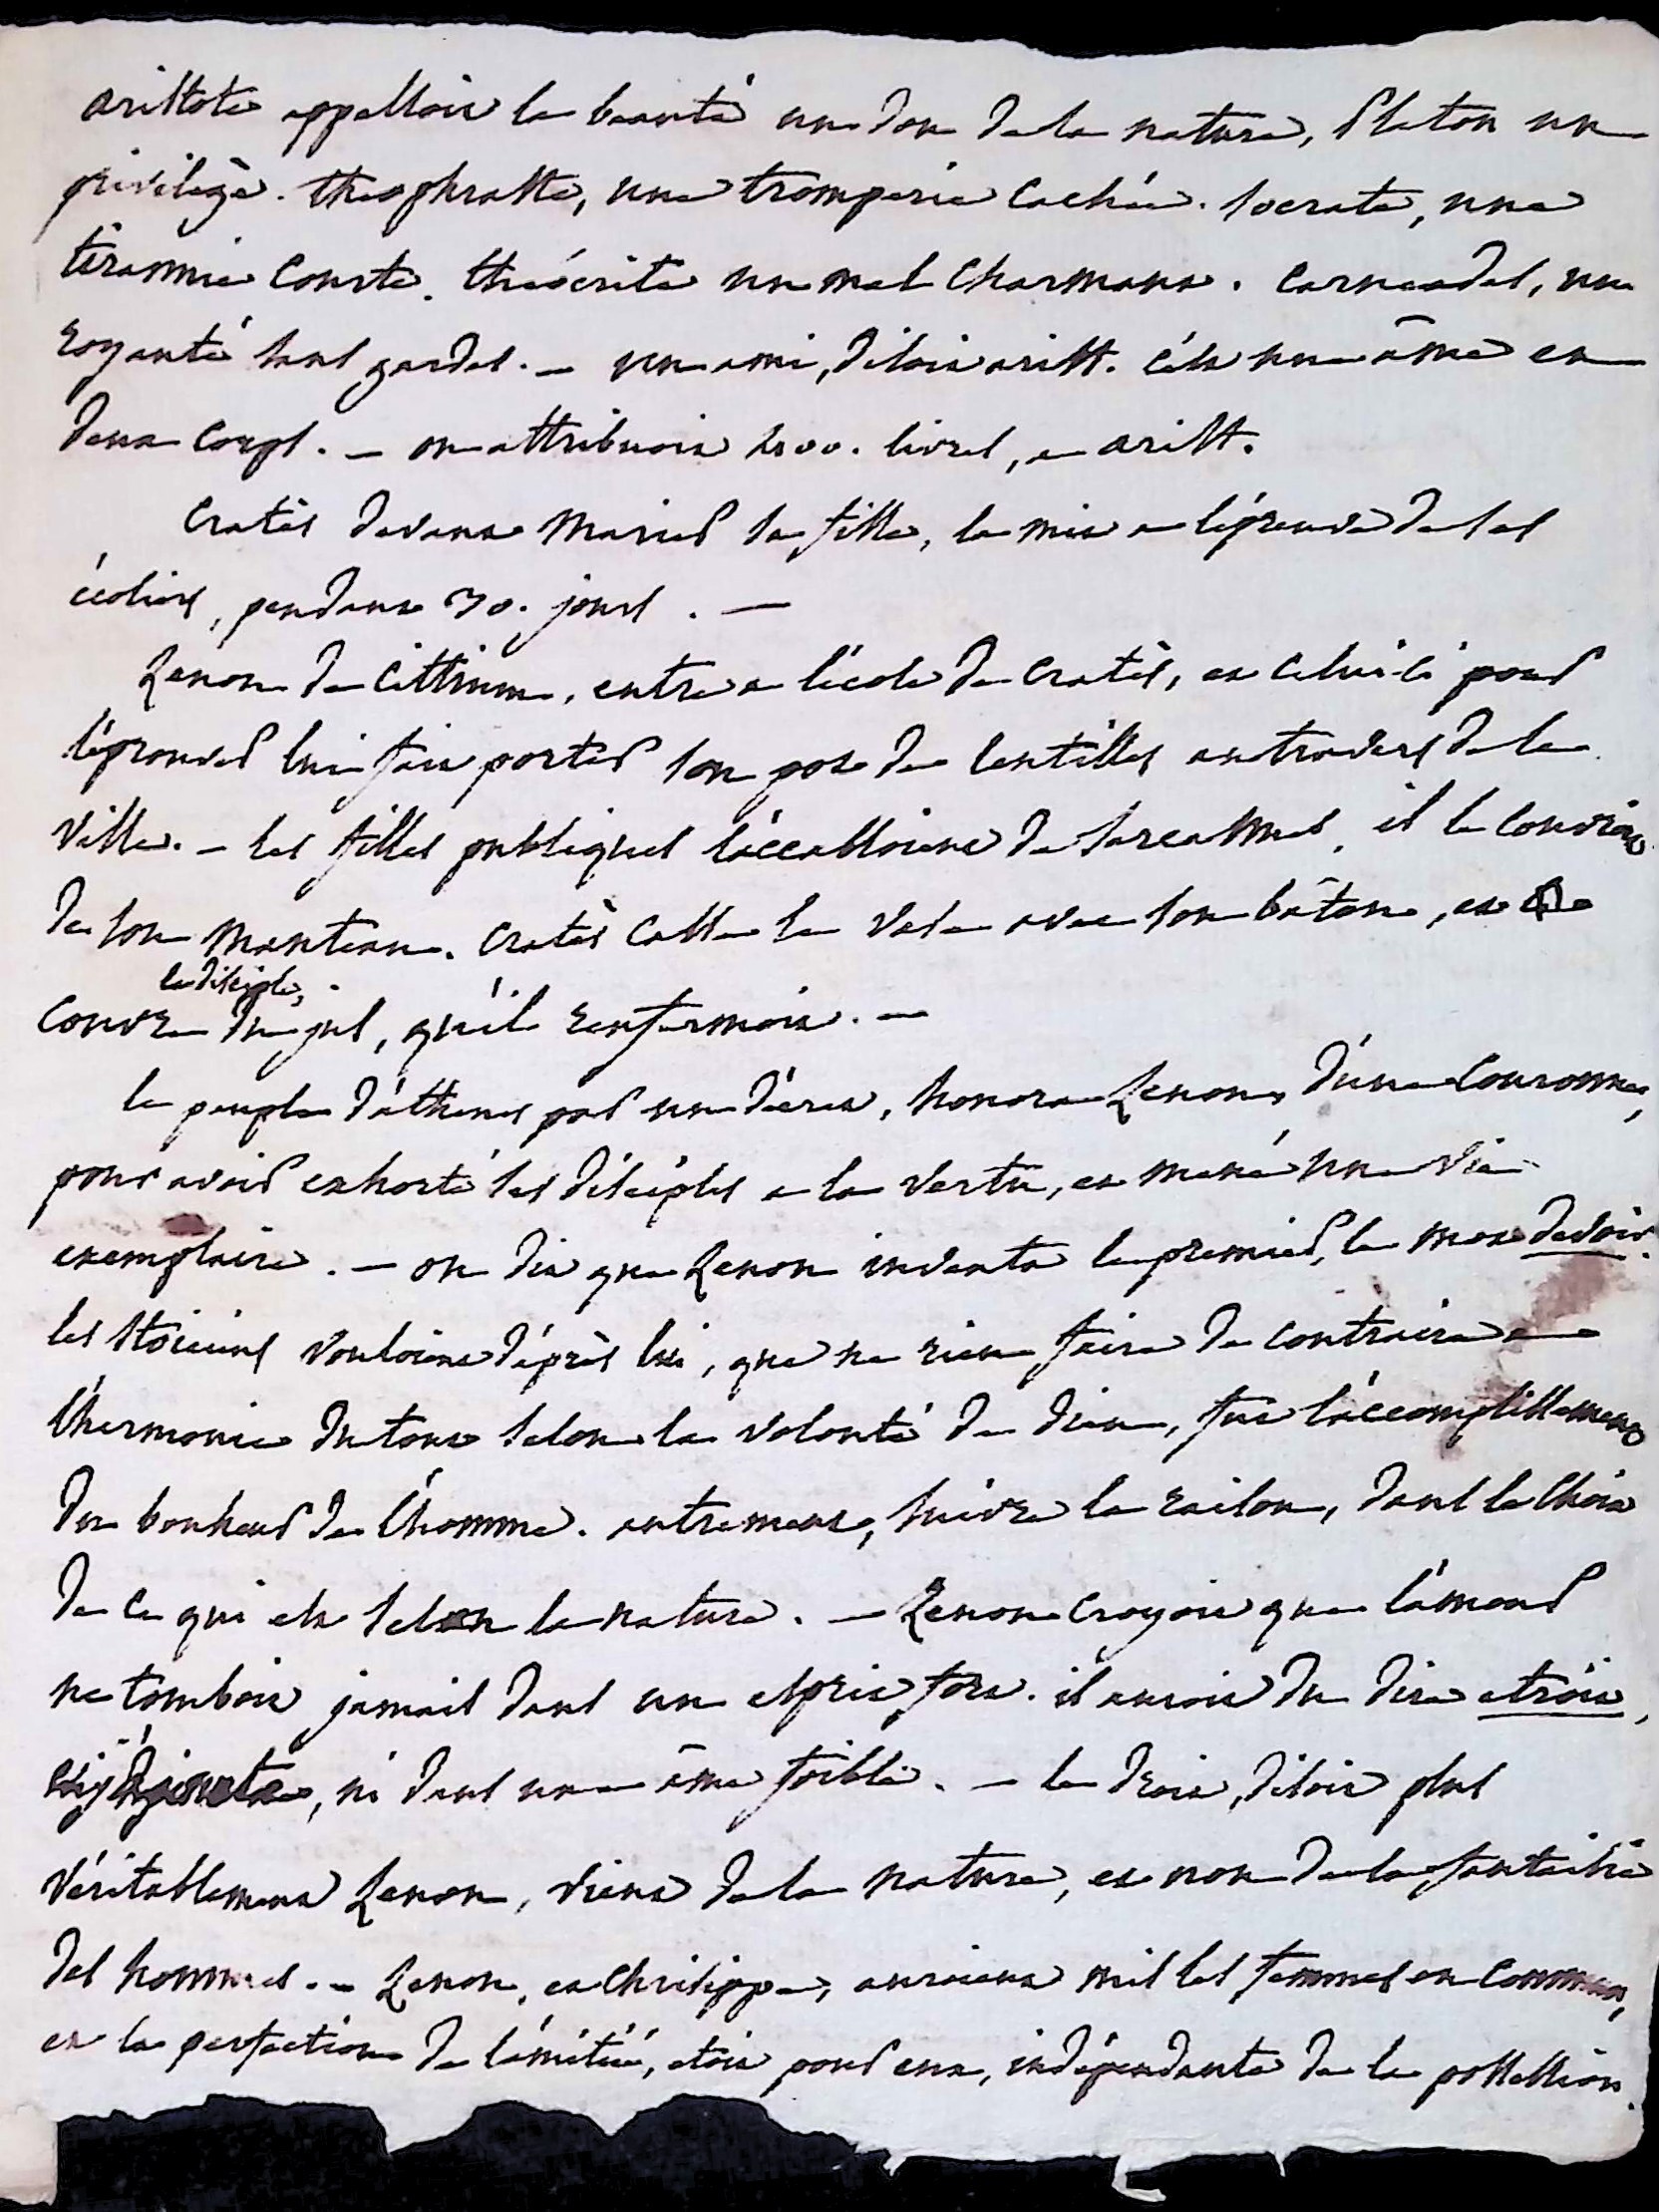 aristote appelloit la beauté un don de la nature, Platon un
privilège. theophraste, une tromperie cachée. socrate, une
tirannie courte. théocrite un mal charmant. carneades, une
royauté sans gardes. — un ami, disoit arist. c'est une âme en
deux corps. — on attribuoit 400. livres, a arist.
Cratès devant marier sa fille, la mit a l'épreuve de ses
écoliers, pendant 30. jours. —
Zenon de Cittium, entre a l'école de Cratès, et celui-ci pour
l'éprouver lui fait porter son pot de lentilles au travers de la
ville. — les filles publiques l'accabloient de sarcasmes, il le couvroit
de son manteau. Cratès casse le vase avec son bâton, et
le disciple,
couvre du jus, qu'il renfermoit. —
le peuple d'athenes par un décret, honora Zenon, d'une couronne,
pour avoir exhorté ses disciples a la vertu, et mené une vie
exemplaire. — on dit que Zenon inventa le premier, le mot devoir.
les stoïciens vouloient d'après lui, que ne rien faire de contraire a
l'harmonie du tout selon la volonté de dieu, fut l'accomplissement
du bonheur de l'homme. autrement, suivre la raison, dans le choix
de ce qui est selon la nature. — Zenon croyoit que l'amour
ne tomboit jamais dans un esprit fort. il auroit du dire etroit,
ni dans une âme foible. — le droit, disoit plus
véritablement Zenon, vient de la nature, et non de la fantaisie
des hommes. — Zenon, et Chrisippe, auroient mis les femmes en commun,
et la perfection de l'amitié, etoit pour eux, indépendante de la possession.